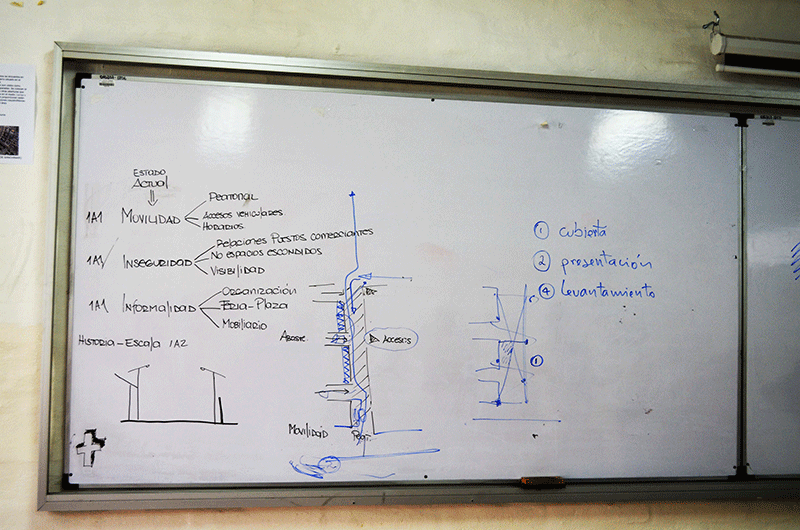 ESTADO
ACTUAL
1A1 MOVILIDAD
PEATONAL
ACCESOS VEHICULARES
HORARIOS
1A1 INSEGURIDAD
RELACIONES PUESTOS COMERCIANTES
NO ESPACIOS ESCONDIDOS
VISIBILIDAD
1A1 INFORMALIDAD
ORGANIZACIÓN
FERIA-PLAZA
MOBILIARIO
HISTORIA-ESCALA 1A2
ABASTE.
ACCESOS
MOVILIDAD PEAT.
2
1 cubierta
2 presentación
4 levantamiento
1